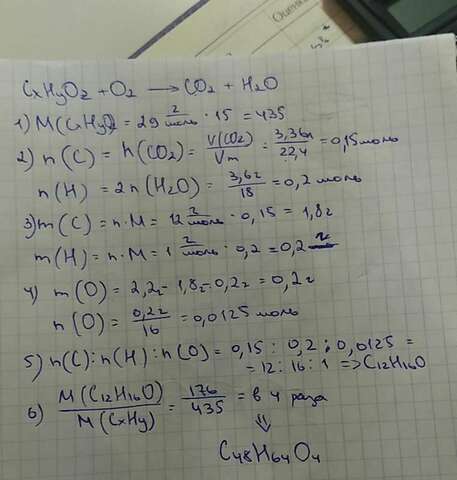 CxHyOz + O2 → CO2 + H2O
1) M(CxHyOz) = 29 г/моль · 15 = 435
2) n(C) = n(CO2) = V(CO2)/Vm = 3,36л/22,4 = 0,15 моль
n(H) = 2n(H2O) = 3,6г/18 = 0,2 моль
3) m(C) = n·M = 12 г/моль · 0,15 = 1,8г
m(H) = n·M = 1 г/моль · 0,2 = 0,2 г
4) m(O) = 2,2г - 1,8г - 0,2г = 0,2г
n(O) = 0,2г/16 = 0,0125 моль
5) n(C):n(H):n(O) = 0,15 : 0,2 : 0,0125 =
= 12 : 16 : 1 ⇒ C12H16O
6) M(C12H16O)/M(CxHy) = 176/435 = в 4 раза
⇓
C48H64O4